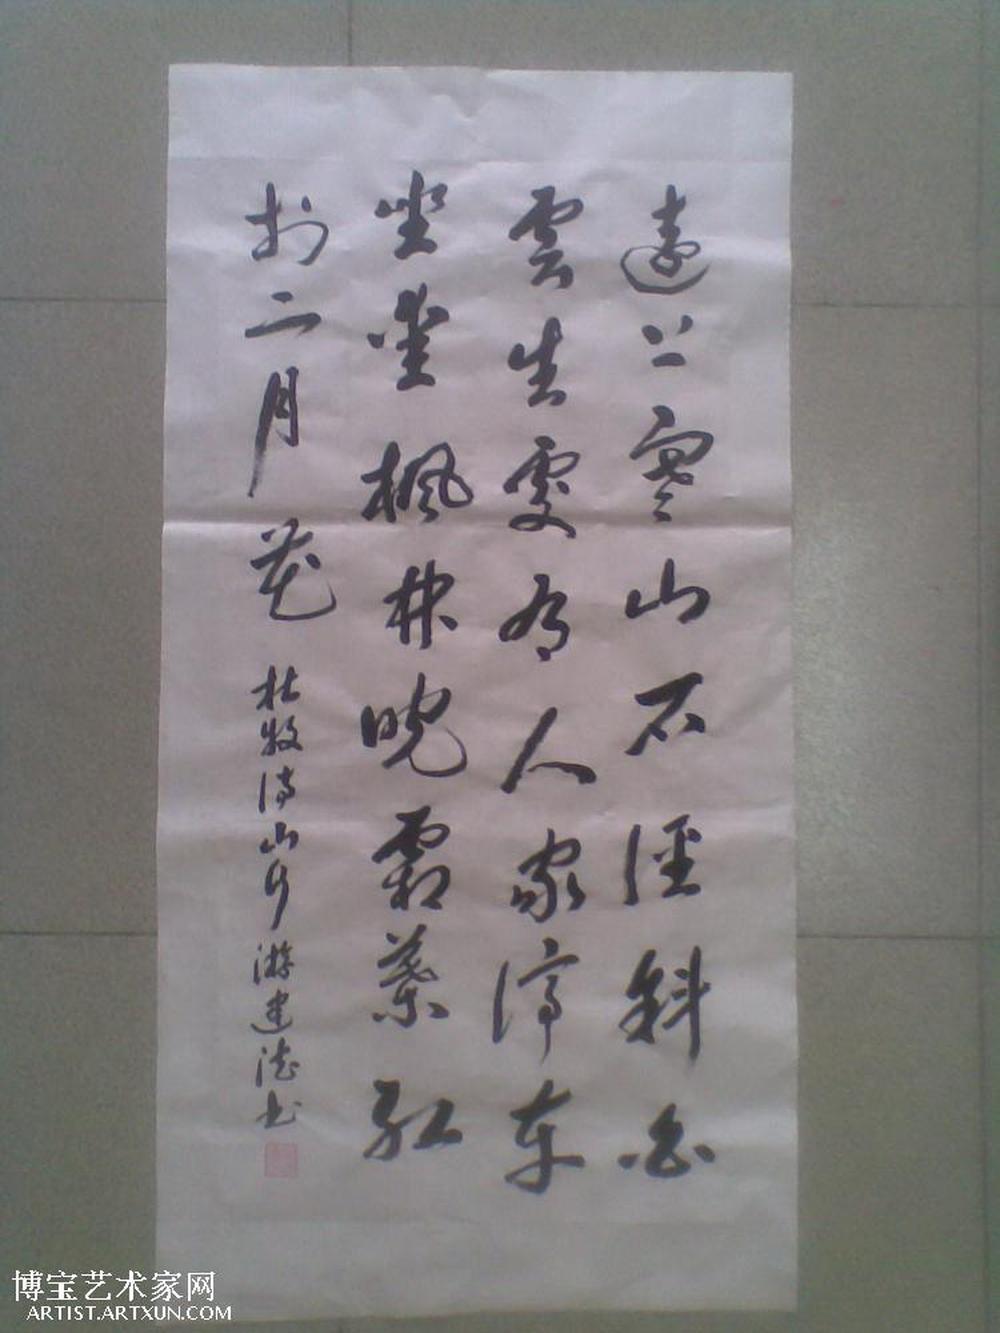 遠上寒山石徑斜白
雲生處有人家停車
坐愛楓林晚霜葉紅
於二月花
杜牧诗山行 游建德书
博宝艺术家网
ARTIST.ARTXUN.COM